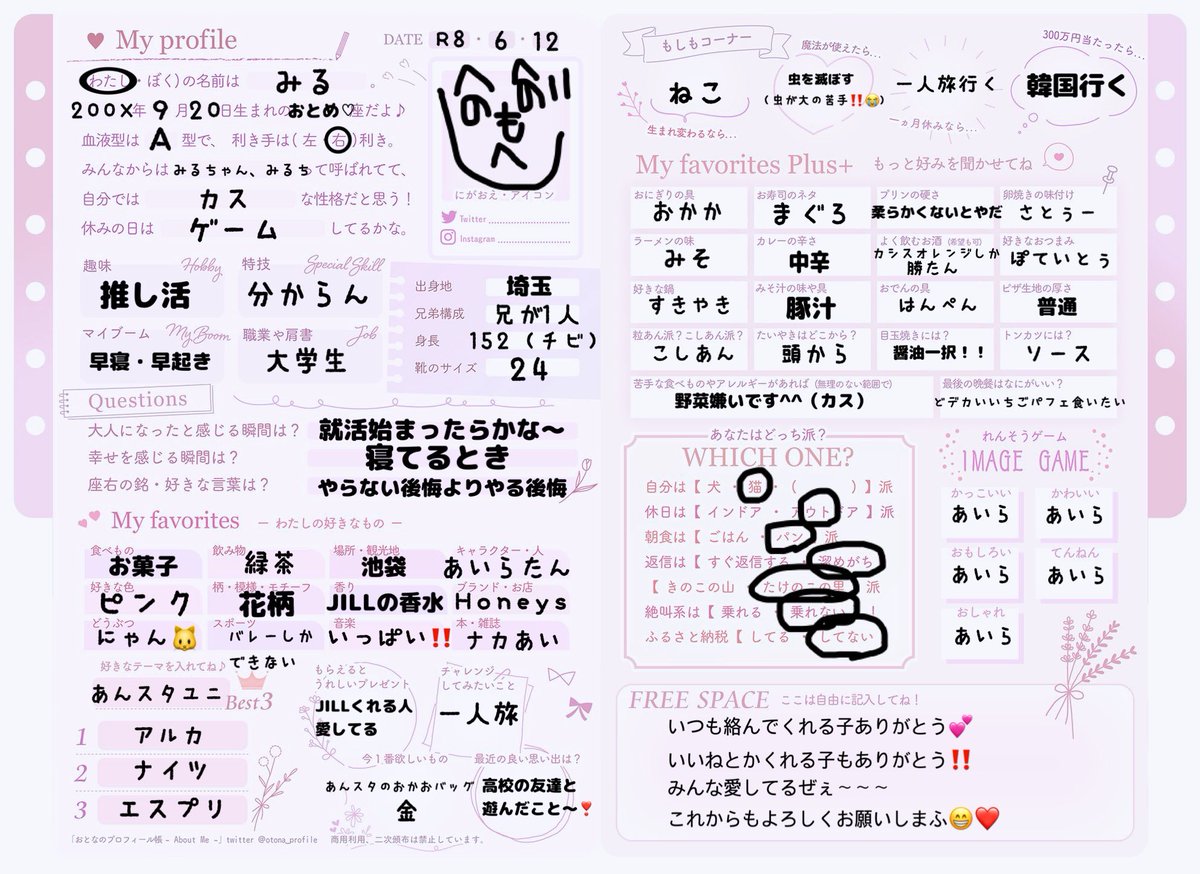 My profile
DATE R8 ・ 6 ・ 12
(わたし・ぼく)の名前は みる 。
200X年 9月20日生まれのおとめ♡座だよ♪
血液型は A 型で、利き手は(左 右)利き。
みんなからは みるちゃん、みるち て呼ばれてて、
自分では カス な性格だと思う！
休みの日は ゲーム してるかな。
へのへのもへ
にがおえ・アイコン
Twitter
Instagram
趣味 Hobby
推し活
特技 Special Skill
分からん
マイブーム My Boom
早寝・早起き
職業や肩書 Job
大学生
出身地 埼玉
兄弟構成 兄が1人
身長 152（チビ）
靴のサイズ 24
Questions
大人になったと感じる瞬間は？ 就活始まったらかな〜
幸せを感じる瞬間は？ 寝てるとき
座右の銘・好きな言葉は？ やらない後悔よりやる後悔
My favorites － わたしの好きなもの －
食べもの お菓子
飲み物 緑茶
場所・観光地 池袋
キャラクター・人 あいらたん
好きな色 ピンク
柄・模様・モチーフ 花柄
香り JILLの香水
ブランド・お店 Honeys
どうぶつ にゃん🐱
スポーツ バレーしか
できない
音楽 いっぱい‼️
本・雑誌 ナカあい
好きなテーマを入れてね♪
あんスタユニ Best3
1 アルカ
2 ナイツ
3 エスプリ
もらえると
うれしいプレゼント
JILLくれる人
愛してる
チャレンジ
してみたいこと
一人旅
今1番欲しいもの
あんスタのおかおバッグ
金
最近の良い思い出は？
高校の友達と
遊んだこと〜❣️
「おとなのプロフィール帳 - About Me -」twitter @otona_profile 商用利用、二次頒布は禁止しています。
もしもコーナー
ねこ
生まれ変わるなら…
魔法が使えたら…
虫を滅ぼす
（虫が大の苦手‼️😭）
一人旅行く
一ヵ月休みなら…
300万円当たったら…
韓国行く
My favorites Plus+ もっと好みを聞かせてね
おにぎりの具 おかか
お寿司のネタ まぐろ
プリンの硬さ 柔らかくないとやだ
卵焼きの味付け さとぅー
ラーメンの味 みそ
カレーの辛さ 中辛
よく飲むお酒（希望も可） カシスオレンジしか
勝たん
好きなおつまみ ぽていとぅ
好きな鍋 すきやき
みそ汁の味や具 豚汁
おでんの具 はんぺん
ピザ生地の厚さ 普通
粒あん派？こしあん派？ こしあん
たいやきはどこから？ 頭から
目玉焼きには？ 醤油一択！！
トンカツには？ ソース
苦手な食べものやアレルギーがあれば（無理のない範囲で）
野菜嫌いです^^（カス）
最後の晩餐はなにがいい？
どデカいいちごパフェ食いたい
あなたはどっち派？
WHICH ONE?
自分は【 犬 ・ 猫 ・（ ）】派
休日は【 インドア ・ アウトドア 】派
朝食は【 ごはん ・ パン 】派
返信は【 すぐ返信する 溜めがち
【 きのこの山 たけのこの里 】派
絶叫系は【 乗れる 乗れない 】！
ふるさと納税【 してる してない
れんそうゲーム
IMAGE GAME
かっこいい あいら
かわいい あいら
おもしろい あいら
てんねん あいら
おしゃれ あいら
FREE SPACE ここは自由に記入してね！
いつも絡んでくれる子ありがとう💕
いいねとかくれる子もありがとう‼️
みんな愛してるぜぇ～～～
これからもよろしくお願いしまふ😁❤️